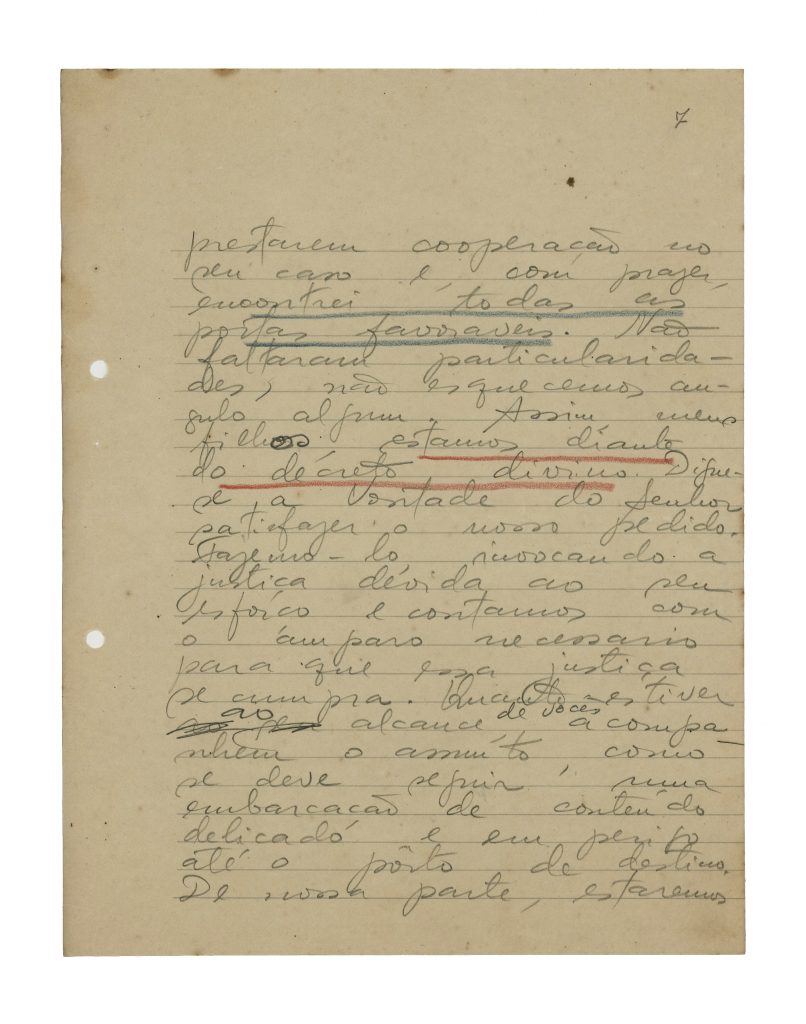 7
prestarem cooperação no
seu caso e com prazer,
encontrei todas as
portas favoraveis. Não
faltaram particularida-
des, não esquecemos an-
gulo algum. Assim meus
filhos estamos diante
do decreto divino. Digne-
se a Vontade do Senhor
satisfazer o nosso pedido.
Fazemo-lo invocando a
justiça dévida ao seu
esforço e contamos com
o amparo necessario
para que essa justiça
se cumpra. Quanto estiver
ao alcance de vocês acompa-
nhem o assunto, como
se deve seguir uma
embarcação de conteúdo
delicado e em perigo
até o pôrto de destino.
De nossa parte, estaremos